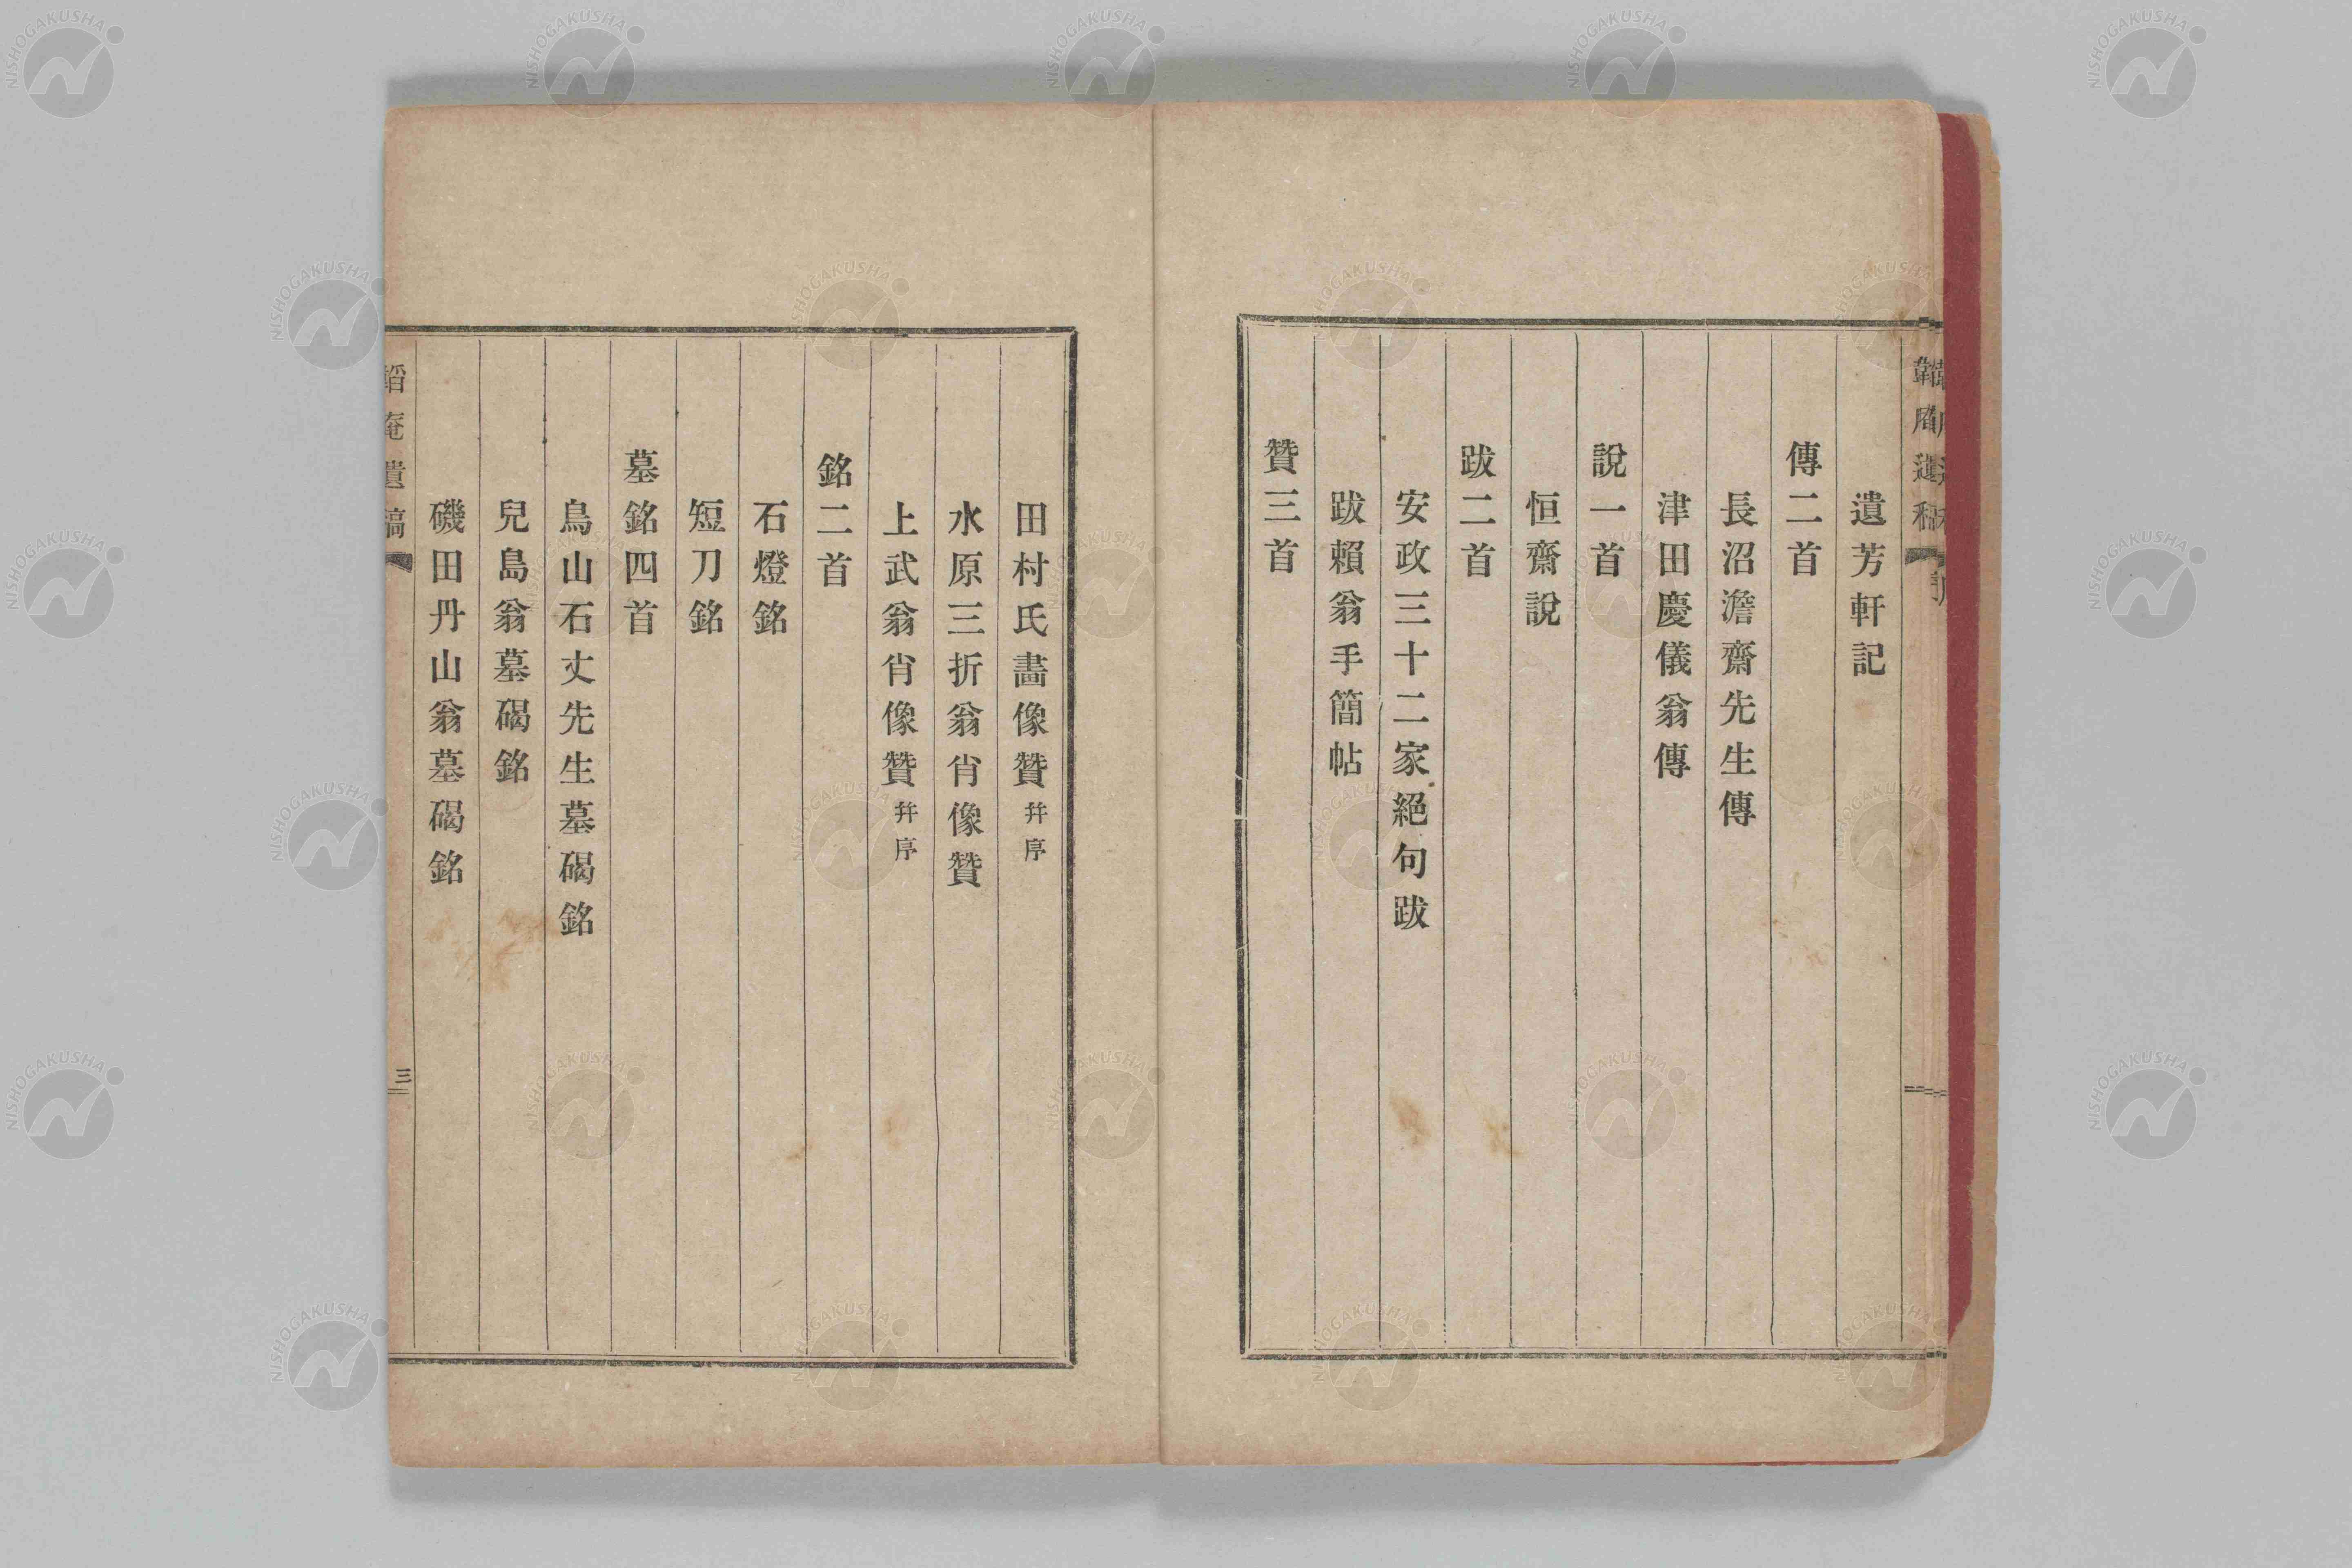 遺芳軒記
傳二首
長沼澹齋先生傳
津田慶儀翁傳
說一首
恒齋說
跋二首
安政三十二家絕句跋
跋賴翁手簡帖
贊三首
田村氏畵像贊幷序
水原三折翁肖像贊
上武翁肖像贊幷序
銘二首
石燈銘
短刀銘
墓銘四首
鳥山石丈先生墓碣銘
兒島翁墓碣銘
磯田丹山翁墓碣銘
韜庵遺稿
三
NISHOGAKUSHA